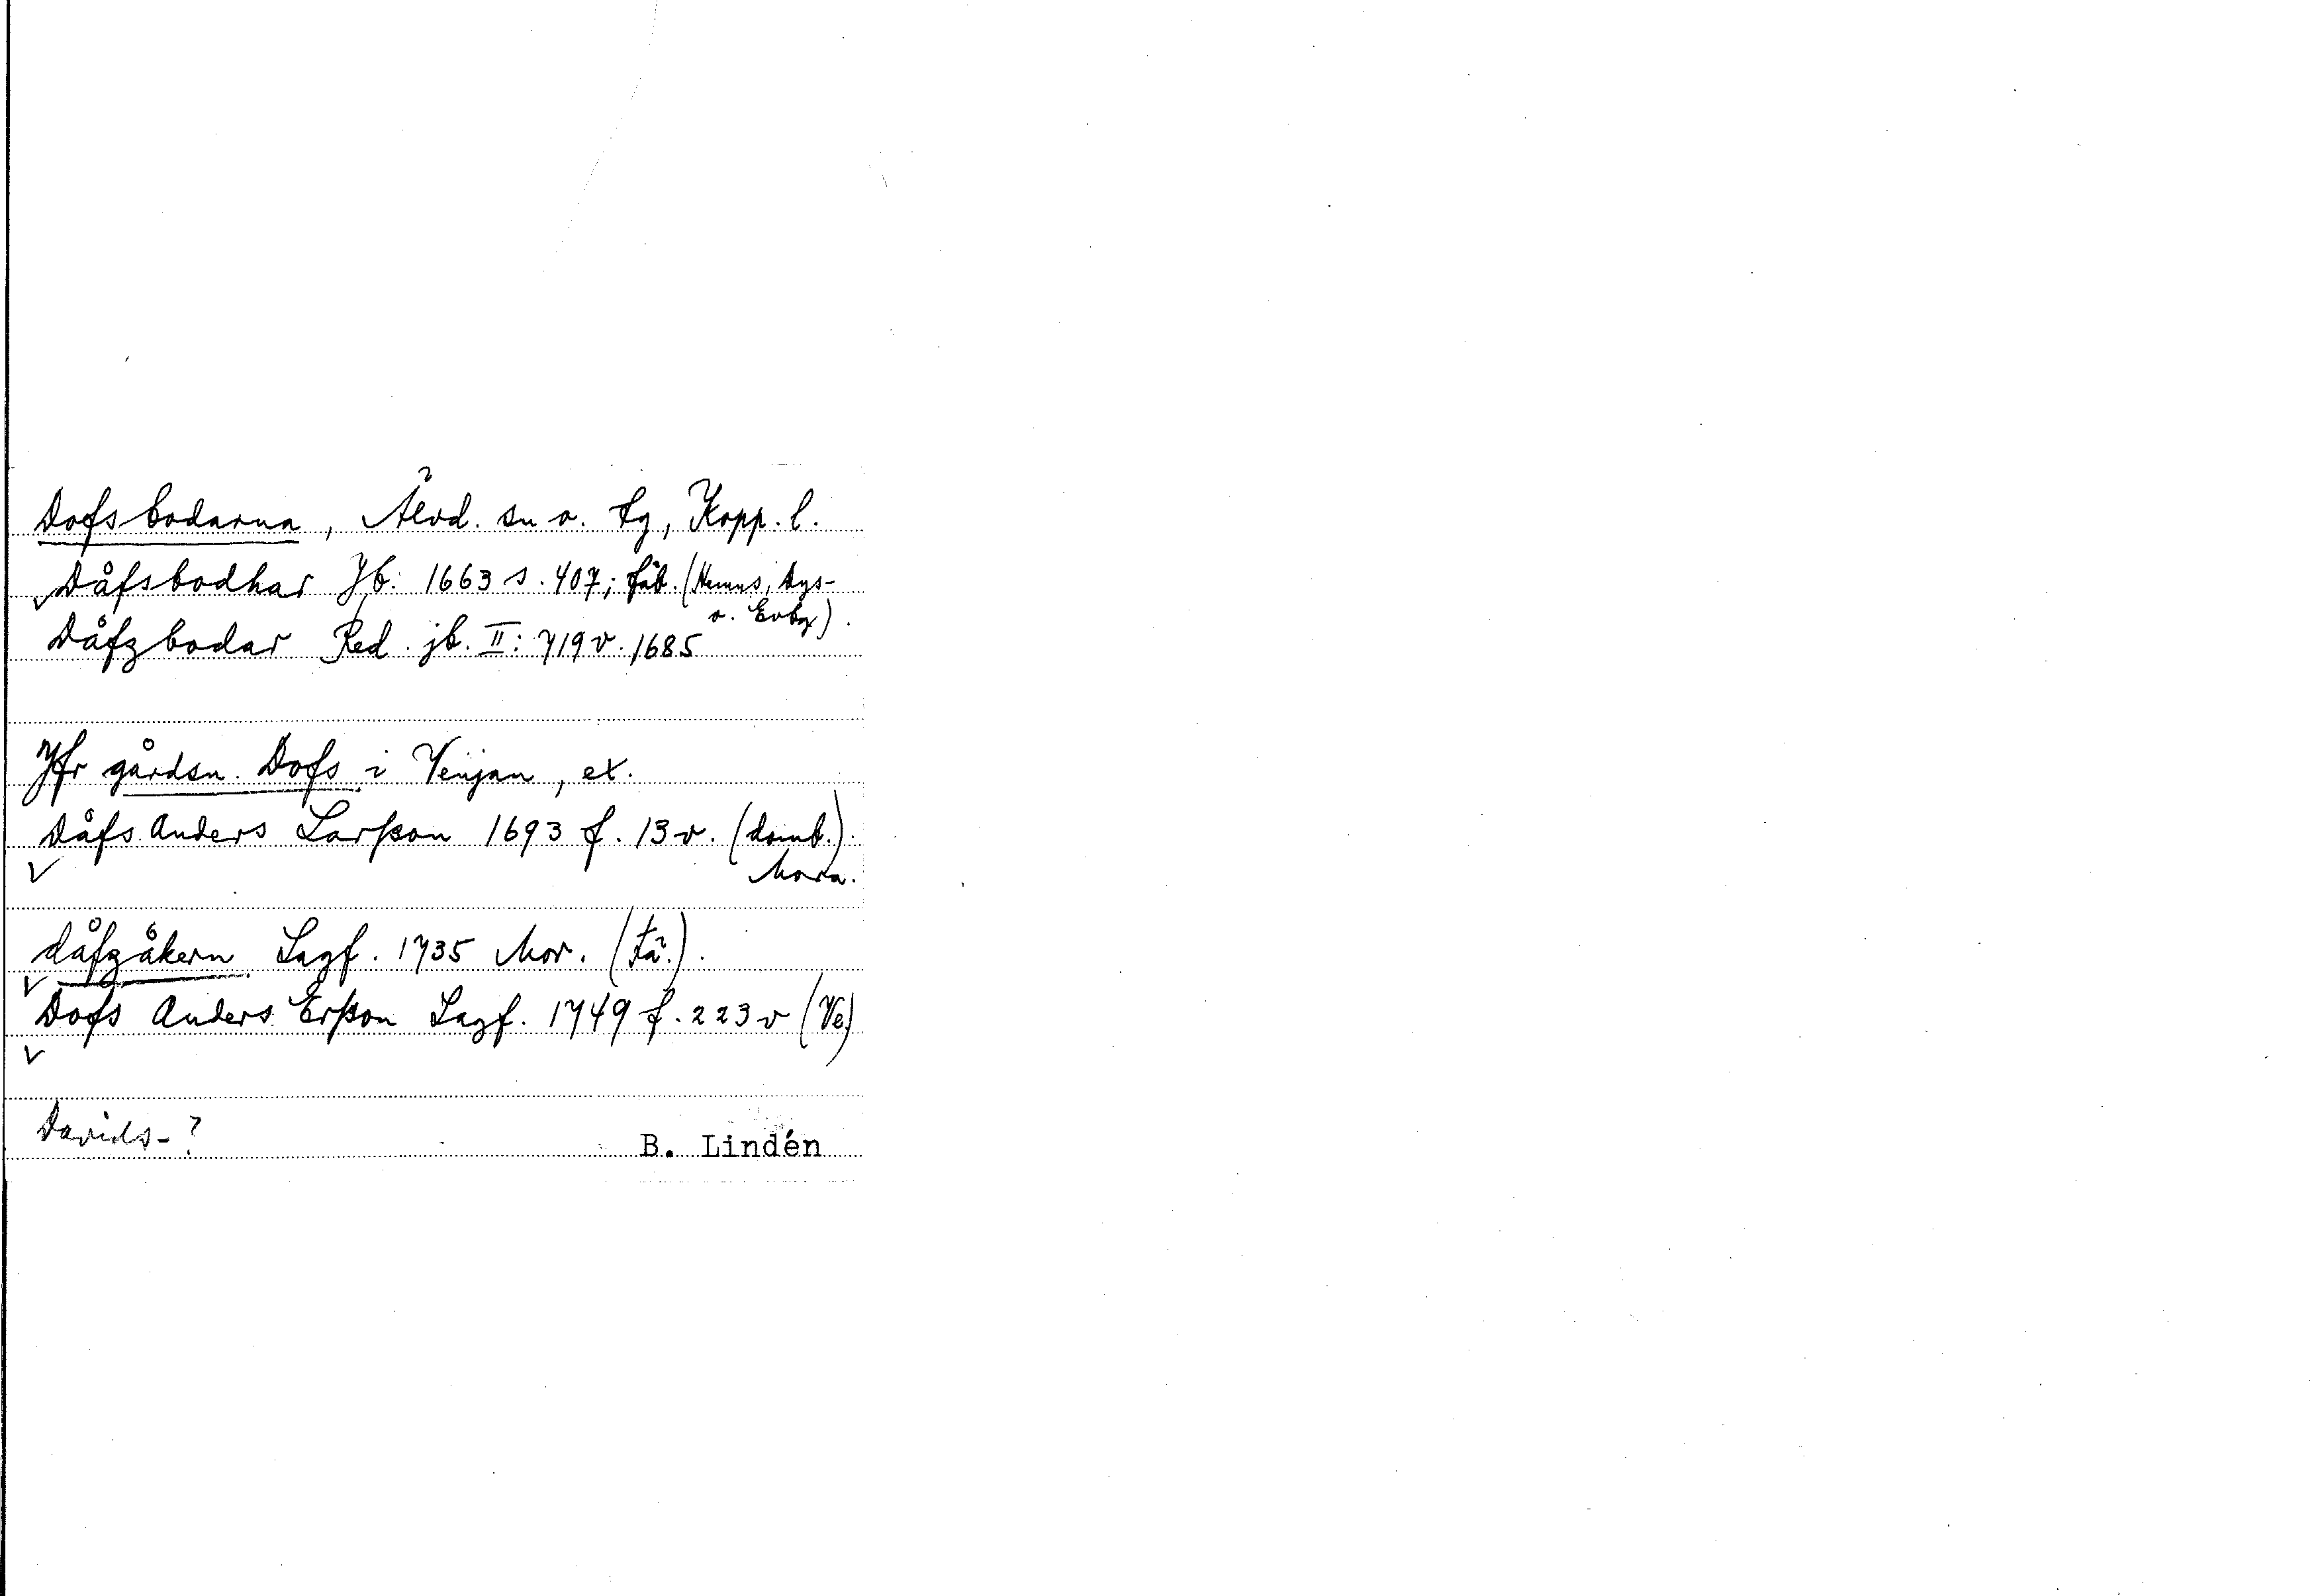 Dofsbodarna, Älvd. sn o. tg, Kopp. l.
Dåfsbodhar Jb. 1663 s. 407; fäb. (Hemus, Åys-
o. Evbg).
Dåfzbodar Red. jb. II: 719 v. 1685
Jfr gårdsn. Dofs i Venjan, ex.
Dåfs Anders Larsson 1693 f. 13 v. (domb.).
Mora.
dåfzåkern Lagf. 1735 Mor. (Fä.).
Dofs Anders Ersson Lagf. 1749 f. 223 v (Ve)
Davids-?
B. Lindén